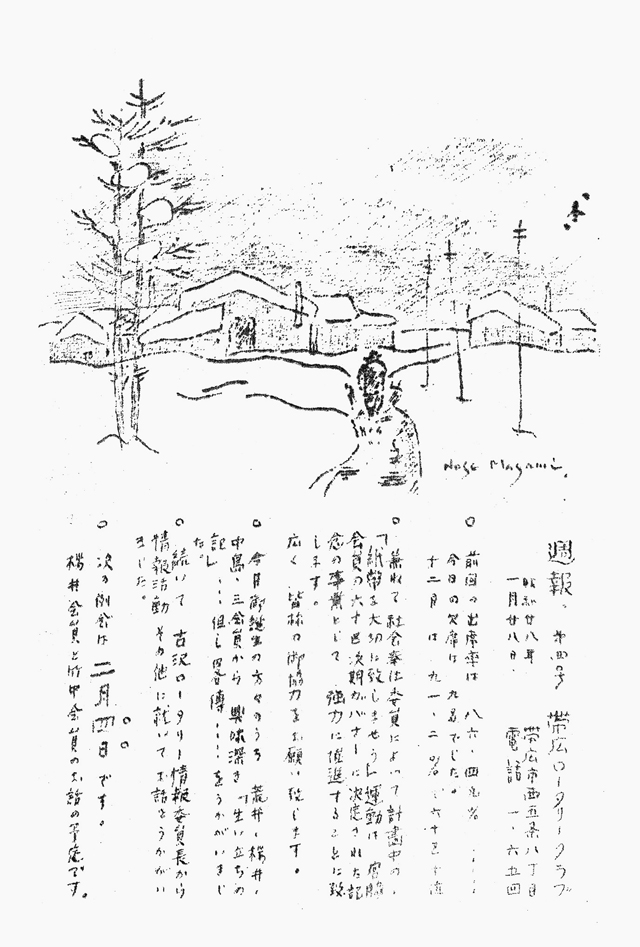 Nage Magami.
週報、第四号 帯広ロータリークラブ
昭和廿八年 帯広市西五条八丁目
一月廿八日、 電話 一、六五四
○ 前回の出席率は 八六・四%
今日の欠席は 九名でした。
十二月は 九一・二%
○ 兼れて社会奉仕委員によって計画中の、
「紙幣を大切に致しませう」運動は
会員の六十四次期ガバナーに決定された記
念の事業として 強力に推進することに致
します。
広く 皆様の御協力をお願い致します。
○ 今月御誕生の方々のうち 荒井、桜井、
中島、三会員から 興味深き「生い立ちの
記」……但し略傳……をうかがいまし
た。
○ 続いて 古沢ロータリー情報委員長から
情報活動 その他に就いてお話をうかがい
ました。
○ 次の例会は 二月四日です。
桜井会員と 会員のお話の予定です。